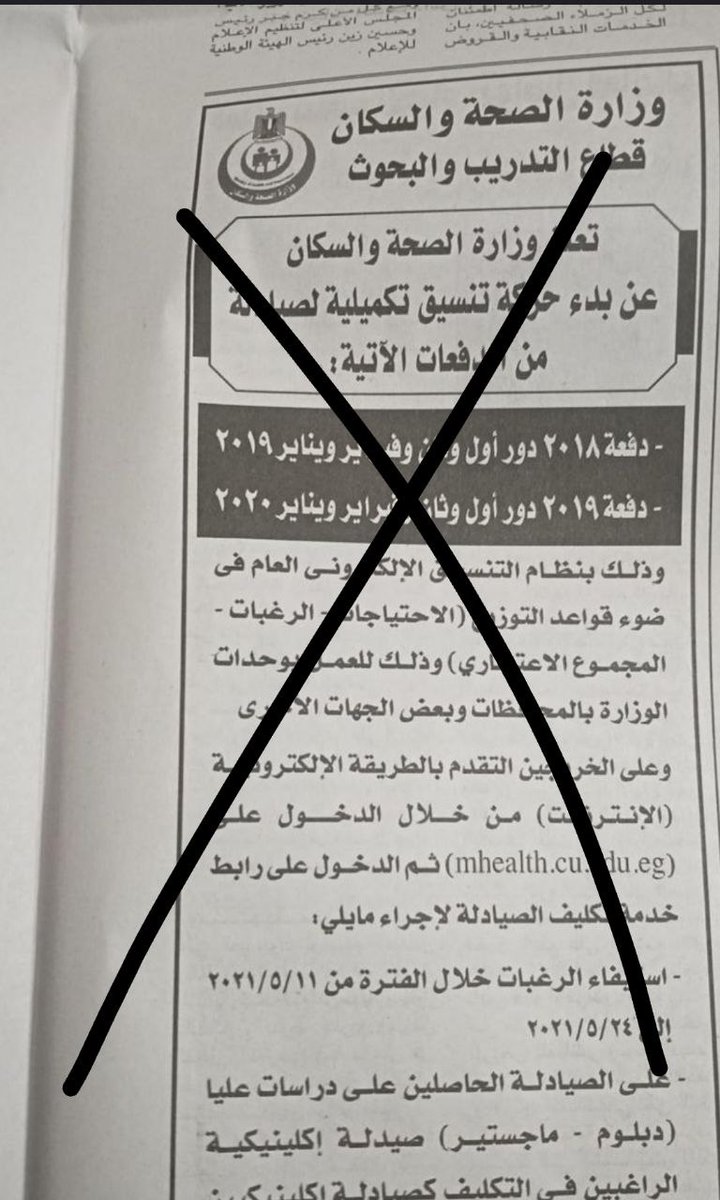 لكل الزملاء الصحفيين، بأن
الخدمات النقابية والقروض
المجلس الأعلى لتنظيم الإعلام
وحسين زين رئيس الهيئة الوطنية
للإعلام.
وزارة الصحة والسكان
قطاع التدريب والبحوث
وزارة الصحة والسكان
تعلن وزارة الصحة والسكان
عن بدء حركة تنسيق تكميلية لصيادلة
من الدفعات الآتية:
- دفعة ٢٠١٨ دور أول وثان وفبراير ويناير ٢٠١٩
- دفعة ٢٠١٩ دور أول وثان وفبراير ويناير ٢٠٢٠
وذلك بنظام التنسيق الإلكترونى العام فى
ضوء قواعد التوزيع (الاحتياجات - الرغبات -
المجموع الاعتبارى) وذلك للعمل بوحدات
الوزارة بالمحافظات وبعض الجهات الأخرى
وعلى الخريجين التقدم بالطريقة الإلكترونية
(الإنترنت) من خلال الدخول على
(mhealth.cu.edu.eg) ثم الدخول على رابط
خدمة تكليف الصيادلة لإجراء مايلي:
- استيفاء الرغبات خلال الفترة من ٢٠٢١/٥/١١
إلى ٢٠٢١/٥/٢٤
- على الصيادلة الحاصلين على دراسات عليا
(دبلوم - ماجستير) صيدلة إكلينيكية
الراغبين فى التكليف كصيادلة إكلينيكيين